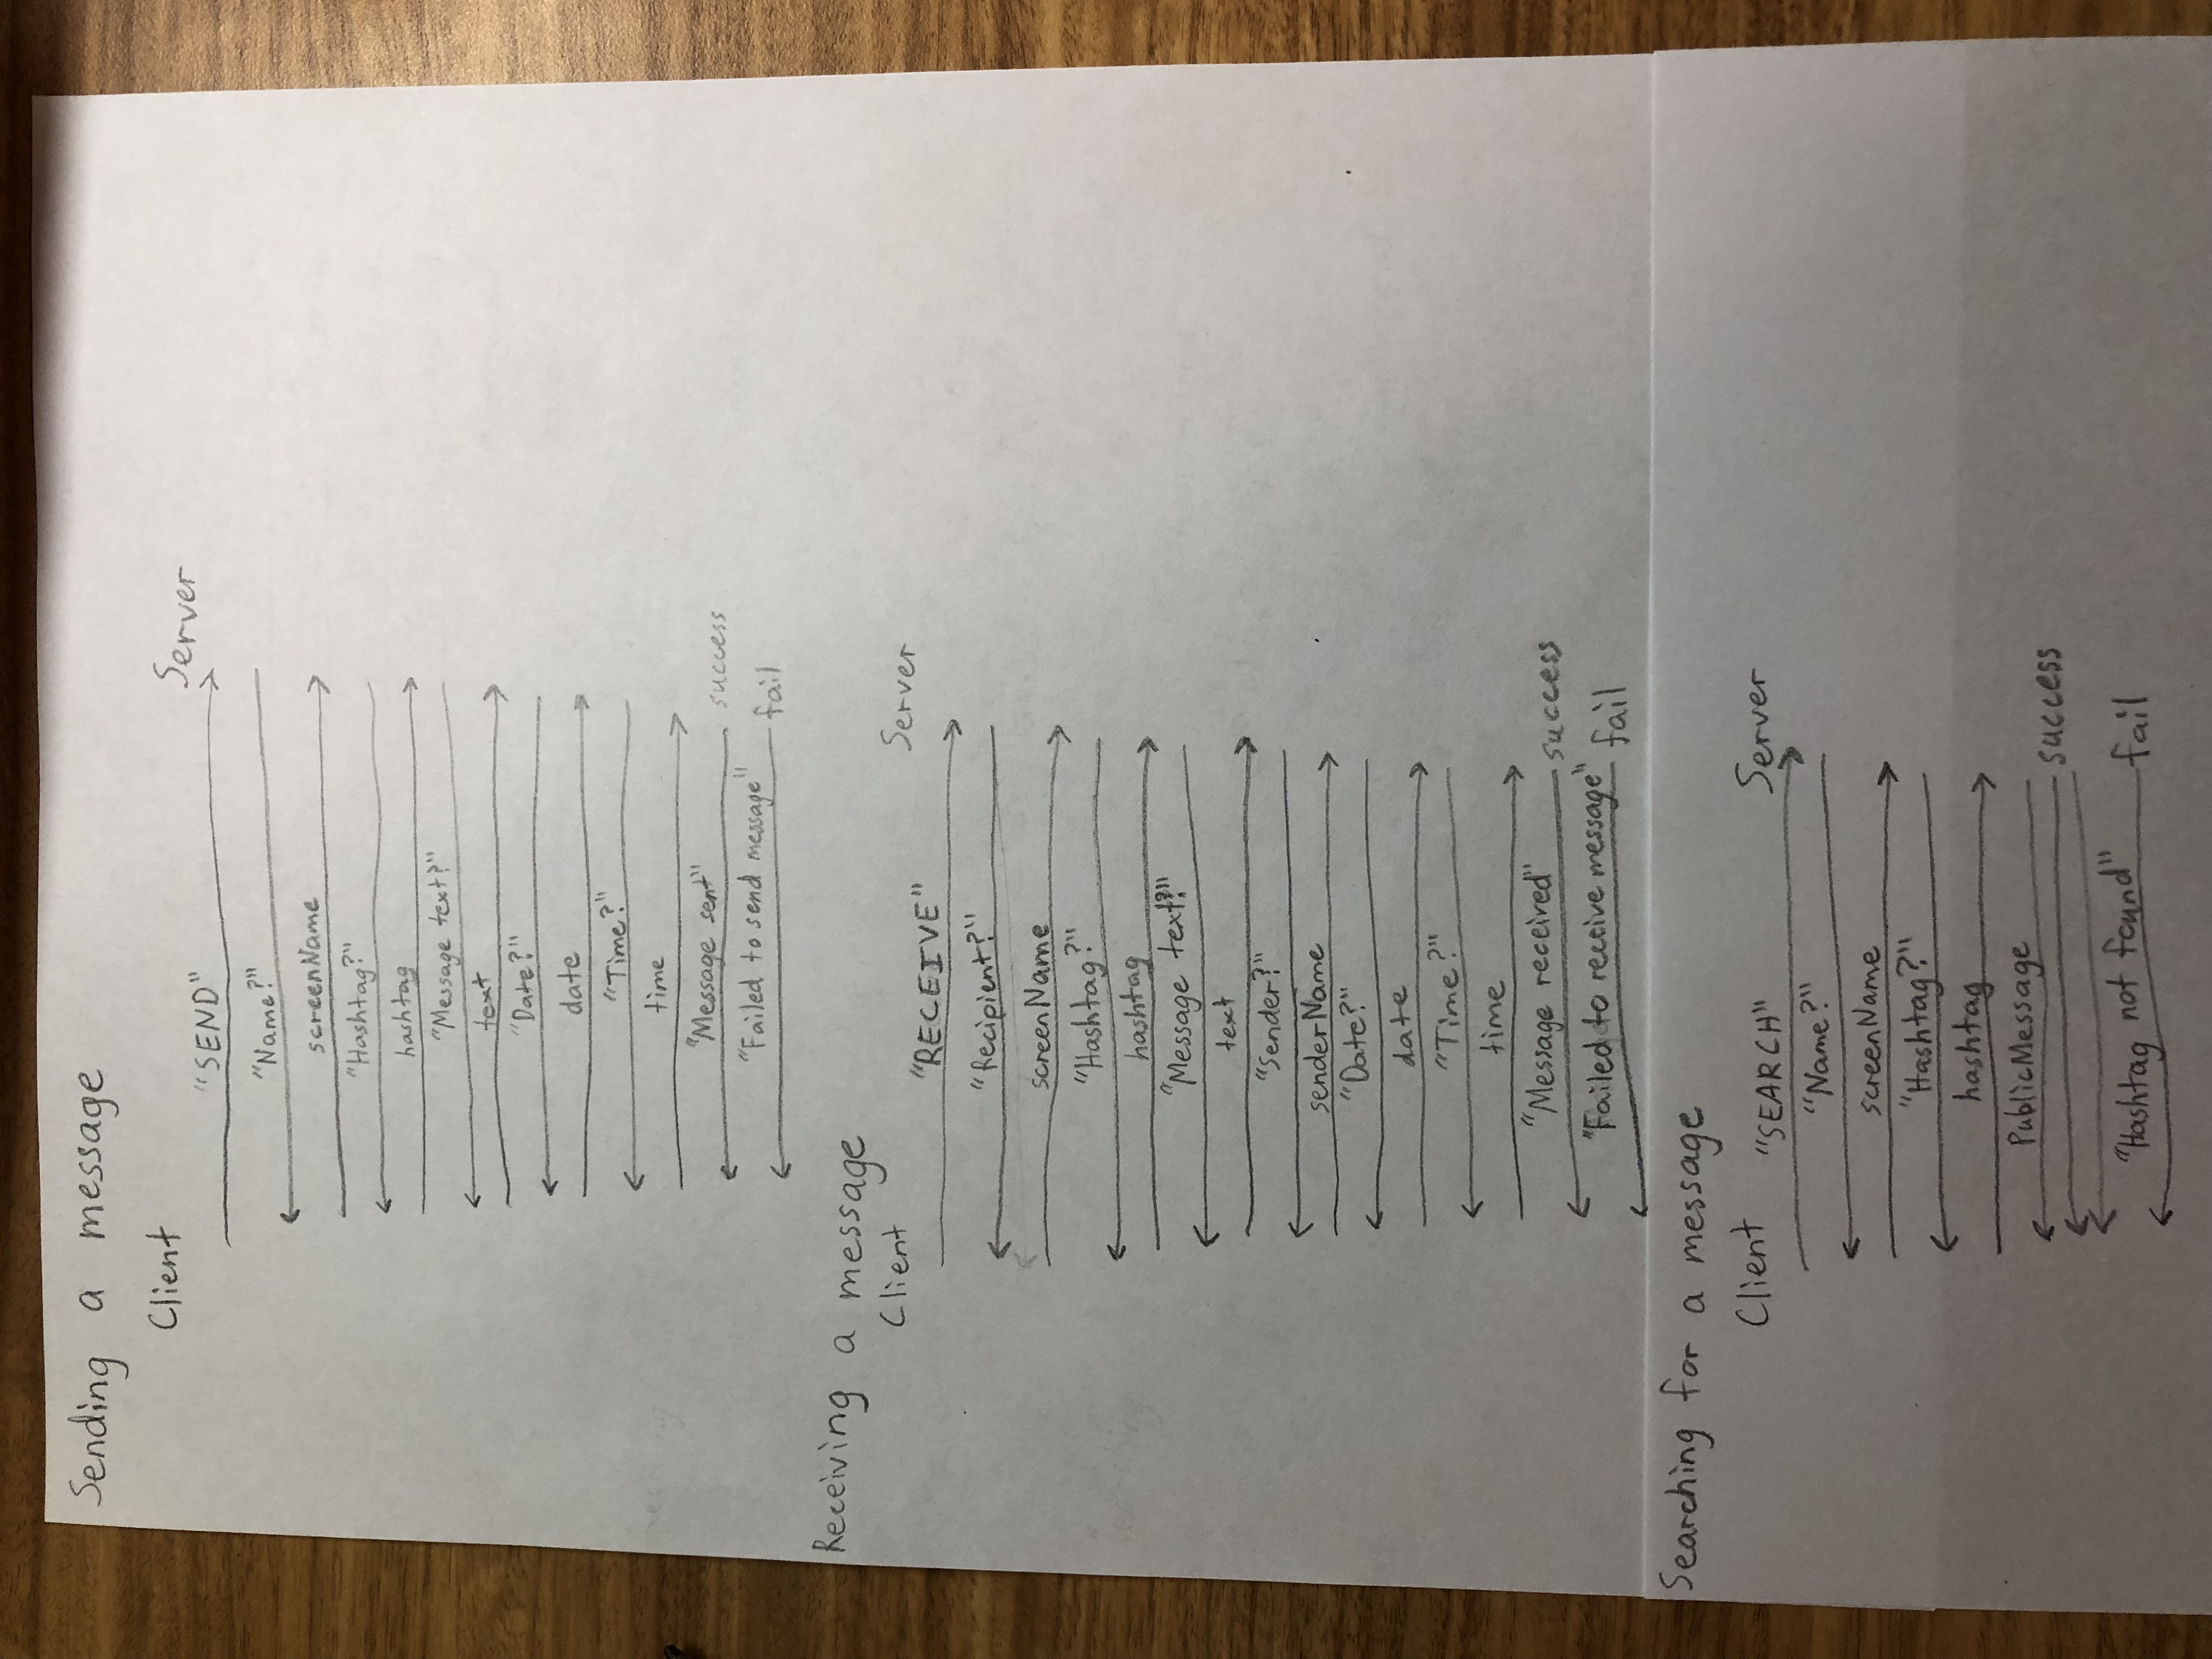 Sending a message
Client Server
"SEND"
"Name?"
screenName
"Hashtag?"
hashtag
"Message text?"
text
"Date?"
date
"Time?"
time
"Message sent" success
"Failed to send message" fail
Receiving a message
Client Server
"RECEIVE"
"Recipient?"
screenName
"Hashtag?"
hashtag
"Message text?"
text
"Sender?"
senderName
"Date?"
date
"Time?"
time
"Message received" success
"Failed to receive message" fail
Searching for a message
Client Server
"SEARCH"
"Name?"
screenName
"Hashtag?"
hashtag
PublicMessage
success
"Hashtag not found" fail